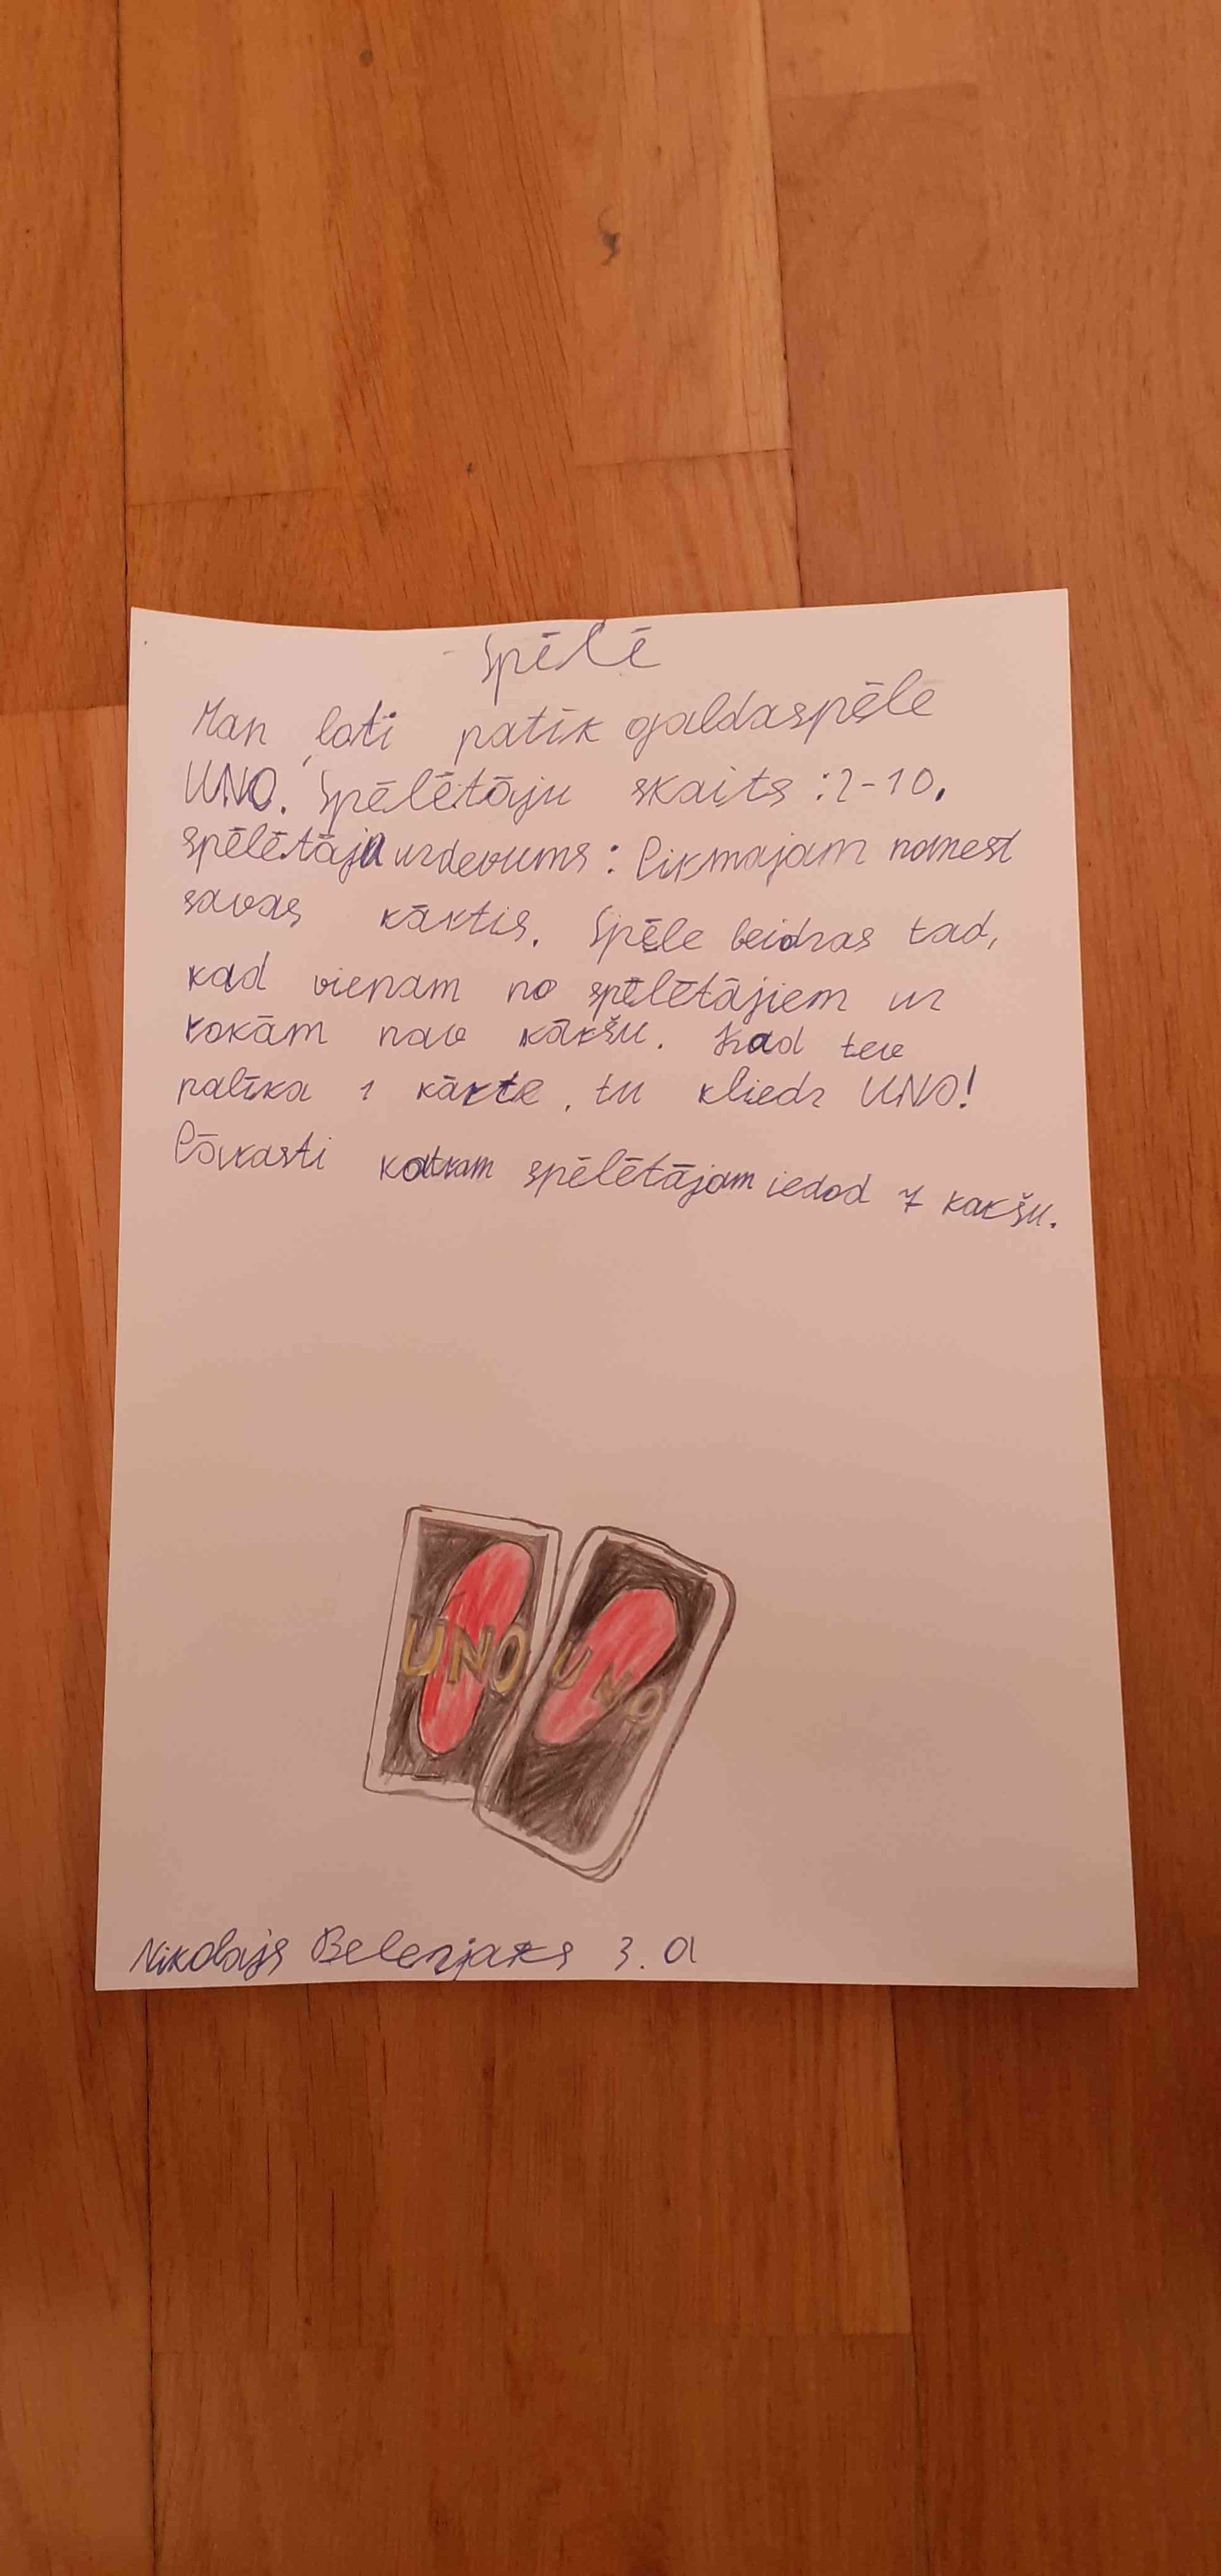 Spēlē
Man ļoti patīk galdaspēle
UNO. Spēlētāju skaits : 2-10.
spēlētāju uzdevums : Pirmajam nomest
savas kārtis. Spēle beidzas tad,
kad vienam no spēlētājiem uz
rokām nav kāršu. Kad tev
palika 1 kārte, tu kliedz UNO!
Pārasti katram spēlētājam iedod 7 karšu.
UNO UNO
Nikolajs Belezjaks 3. a